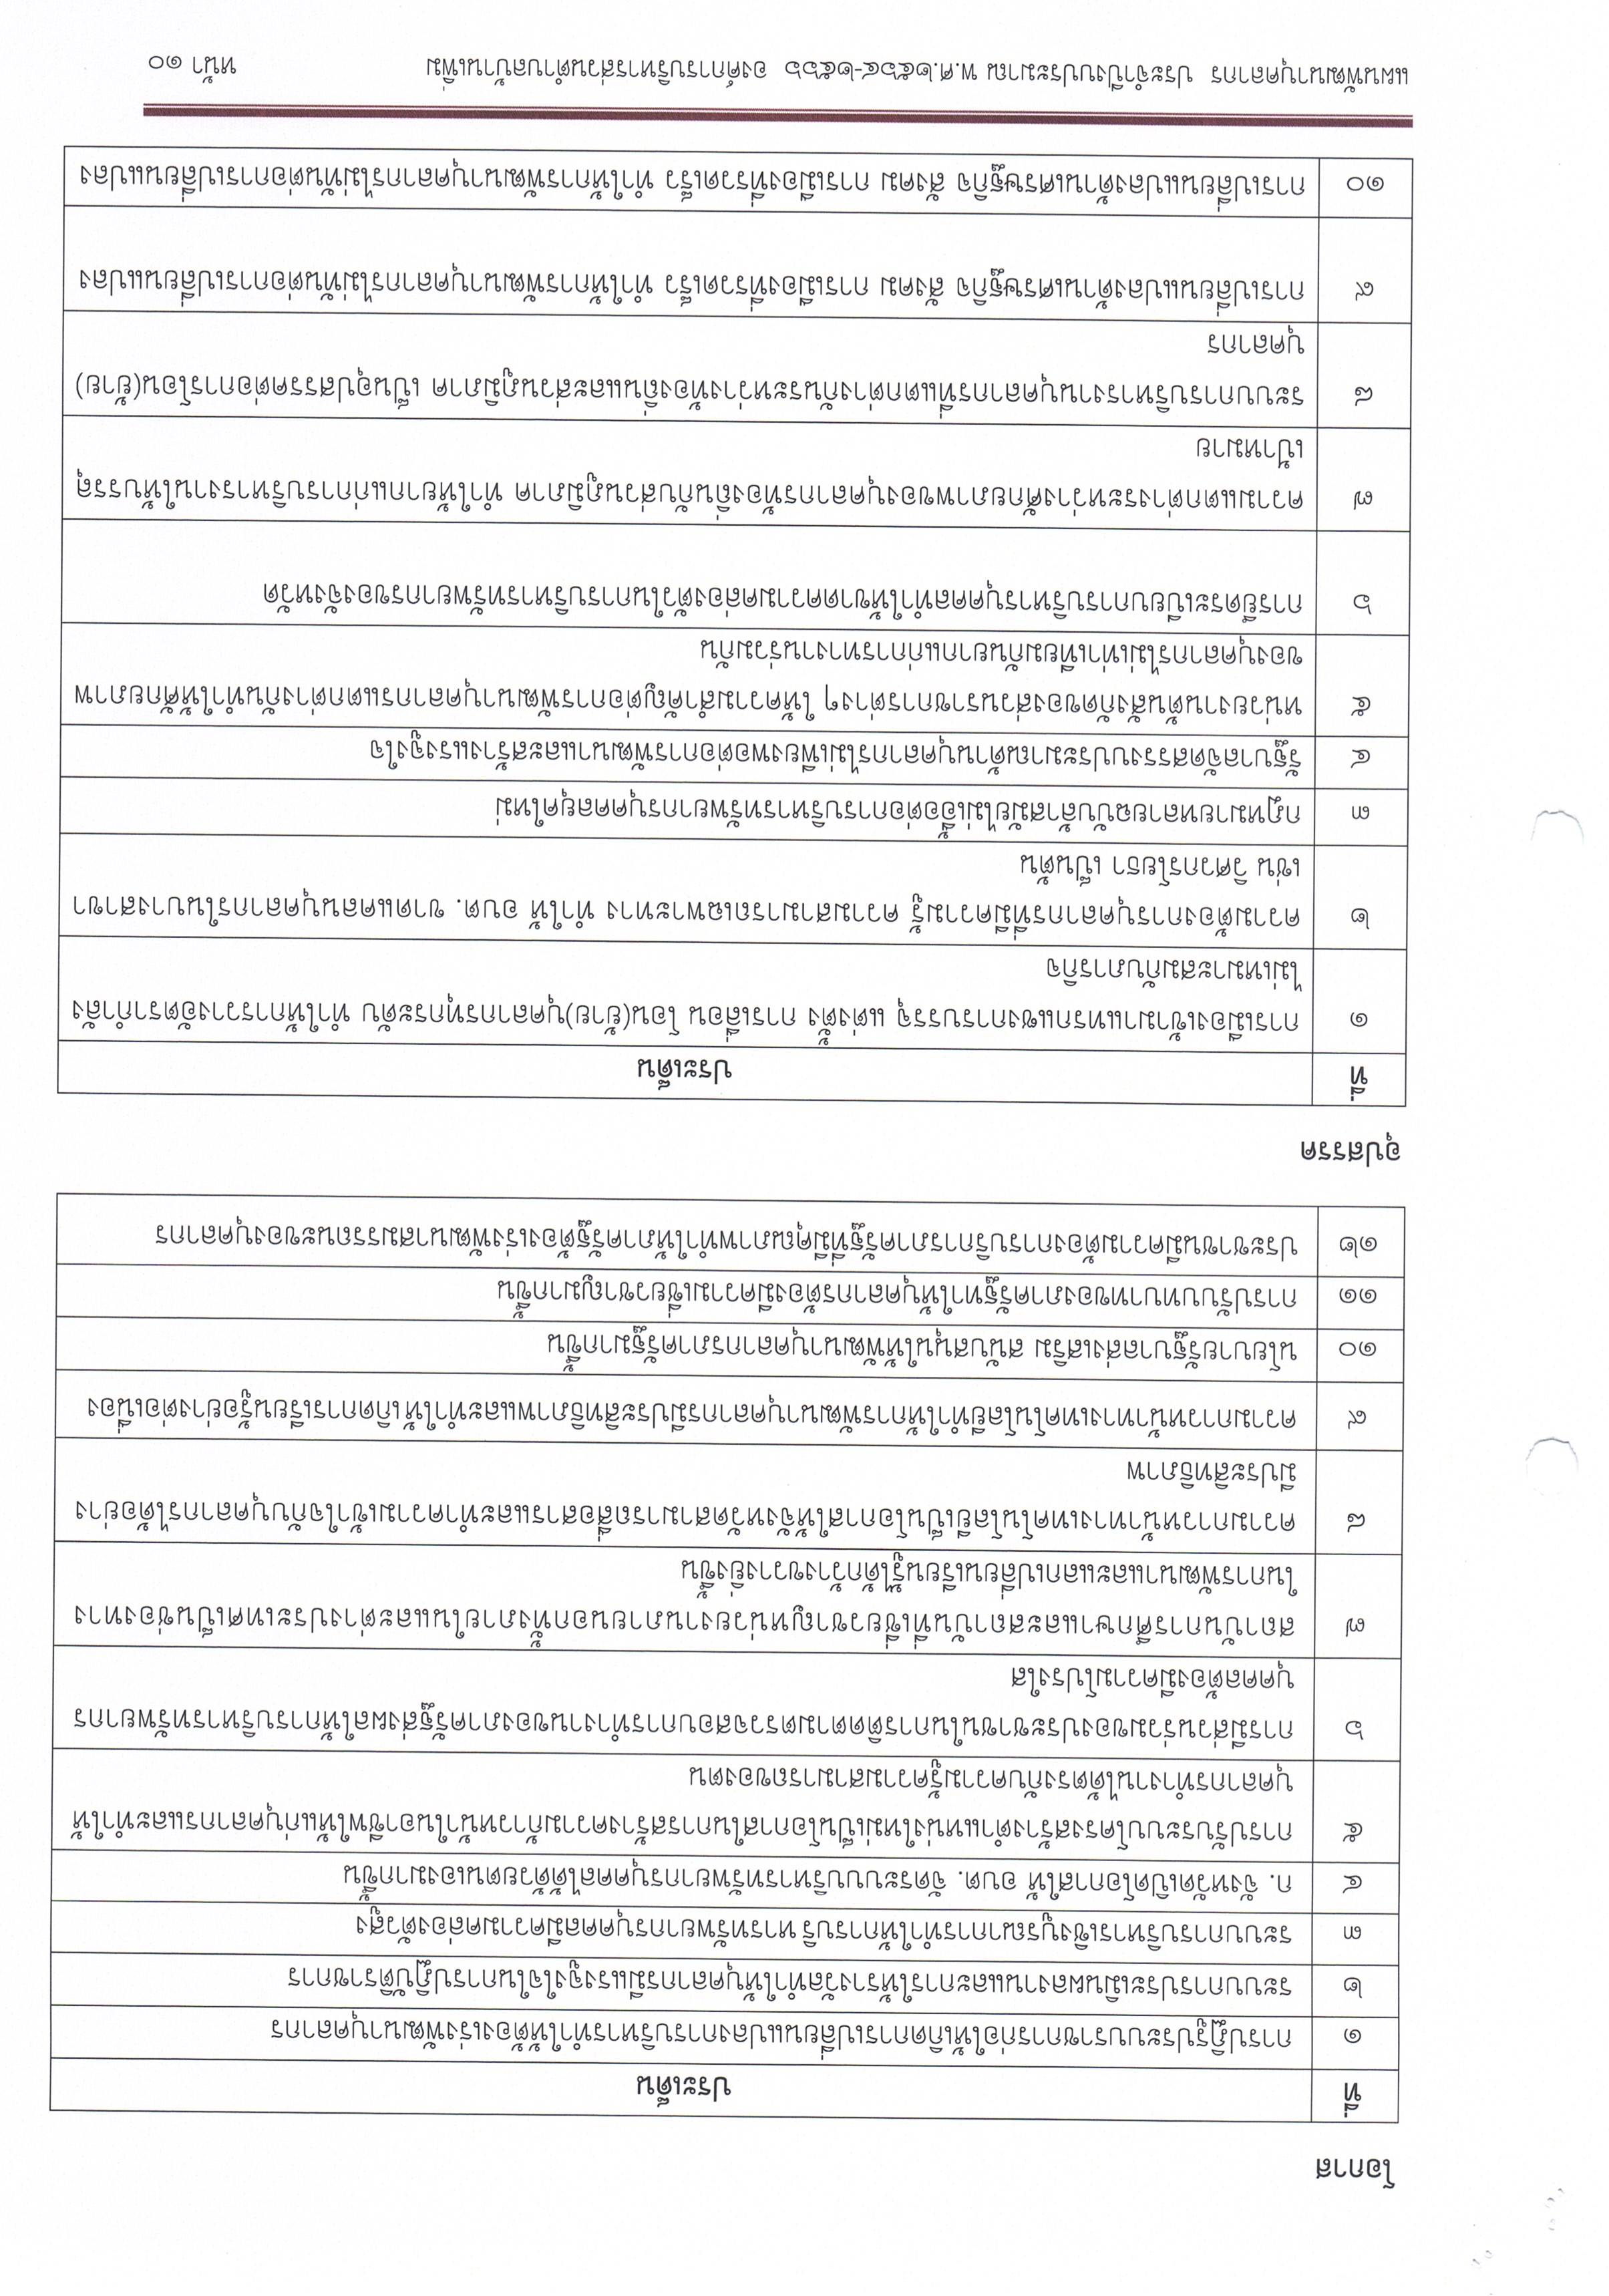 โอกาส
ที่ ประเด็น
๑ การปฏิรูประบบราชการก่อให้เกิดการเปลี่ยนแปลงการบริหารทำให้ต้องเร่งพัฒนาบุคลากร
๒ ระบบการประเมินผลงานและการให้รางวัลทำให้บุคลากรมีแรงจูงใจในการปฏิบัติราชการ
๓ ระบบการบริหารเชิงบูรณาการทำให้การบริหารทรัพยากรบุคคลมีความคล่องตัวสูง
๔ ก. จังหวัดเปิดโอกาสให้ อบต. จัดระบบบริหารทรัพยากรบุคคลได้ด้วยตนเองมากขึ้น
๕ การปรับระบบโครงสร้างตำแหน่งใหม่เป็นโอกาสในการสร้างความก้าวหน้าในอาชีพให้แก่บุคลากรและทำให้
บุคลากรทำงานได้ตรงกับความรู้ความสามารถของตน
๖ การมีส่วนร่วมของประชาชนในการติดตามตรวจสอบการทำงานของภาครัฐส่งผลให้การบริหารทรัพยากร
บุคคลต้องมีความโปร่งใส
๗ สถาบันการศึกษาและสถาบันที่เชี่ยวชาญหน่วยงานภายนอกทั้งภายในและต่างประเทศเป็นช่องทาง
ในการพัฒนาและแลกเปลี่ยนเรียนรู้ได้กว้างขวางยิ่งขึ้น
๘ ความก้าวหน้าทางเทคโนโลยีเป็นโอกาสให้จังหวัดสามารถสื่อสารและทำความเข้าใจกับบุคลากรได้อย่าง
มีประสิทธิภาพ
๙ ความก้าวหน้าทางเทคโนโลยีทำให้การพัฒนาบุคลากรมีประสิทธิภาพและทำให้เกิดการเรียนรู้อย่างต่อเนื่อง
๑๐ นโยบายรัฐบาลส่งเสริม สนับสนุนให้พัฒนาบุคลากรภาครัฐมากขึ้น
๑๑ การปรับบทบาทของภาครัฐทำให้บุคลากรต้องมีความเชี่ยวชาญมากขึ้น
๑๒ ประชาชนมีความต้องการบริการภาครัฐที่มีคุณภาพทำให้ภาครัฐต้องเร่งพัฒนาสมรรถนะของบุคลากร
อุปสรรค
ที่ ประเด็น
๑ การเมืองเข้ามาแทรกแซงการบรรจุ แต่งตั้ง การเลื่อน โอน(ย้าย)บุคลากรทุกระดับ ทำให้การวางอัตรากำลัง
ไม่เหมาะสมกับภารกิจ
๒ ความต้องการบุคลากรที่มีความรู้ ความสามารถเฉพาะทาง ทำให้ อบต. ขาดแคลนบุคลากรในบางสาขา
เช่น วิศวกรโยธา เป็นต้น
๓ กฎหมายหลายฉบับล้าสมัยไม่เอื้อต่อการบริหารทรัพยากรบุคคลยุคใหม่
๔ รัฐบาลจัดสรรงบประมาณด้านบุคลากรไม่เพียงพอต่อการพัฒนาและสร้างแรงจูงใจ
๕ หน่วยงานต้นสังกัดของส่วนราชการต่างๆ ให้ความสำคัญต่อการพัฒนาบุคลากรแตกต่างกันทำให้ศักยภาพ
ของบุคลากรไม่เท่าเทียมกันยากแก่การทำงานร่วมกัน
๖ การยึดระเบียบการบริหารบุคคลทำให้ขาดความคล่องตัวในการบริหารทรัพยากรของจังหวัด
๗ ความแตกต่างระหว่างศักยภาพของบุคลากรท้องถิ่นกับส่วนภูมิภาค ทำให้ยากแก่การบริหารงานให้บรรลุ
เป้าหมาย
๘ ระบบการบริหารงานบุคลากรที่แตกต่างกันระหว่างท้องถิ่นและส่วนภูมิภาค เป็นอุปสรรคต่อการโอน(ย้าย)
บุคลากร
๙ การเปลี่ยนแปลงด้านเศรษฐกิจ สังคม การเมืองที่รวดเร็ว ทำให้การพัฒนาบุคลากรไม่ทันต่อการเปลี่ยนแปลง
๑๐ การเปลี่ยนแปลงด้านเศรษฐกิจ สังคม การเมืองที่รวดเร็ว ทำให้การพัฒนาบุคลากรไม่ทันต่อการเปลี่ยนแปลง
แผนพัฒนาบุคลากร ประจำปีงบประมาณ พ.ศ.๒๕๖๔-๒๕๖๖ องค์การบริหารส่วนตำบลบ้านเพิ่ม หน้า ๑๐